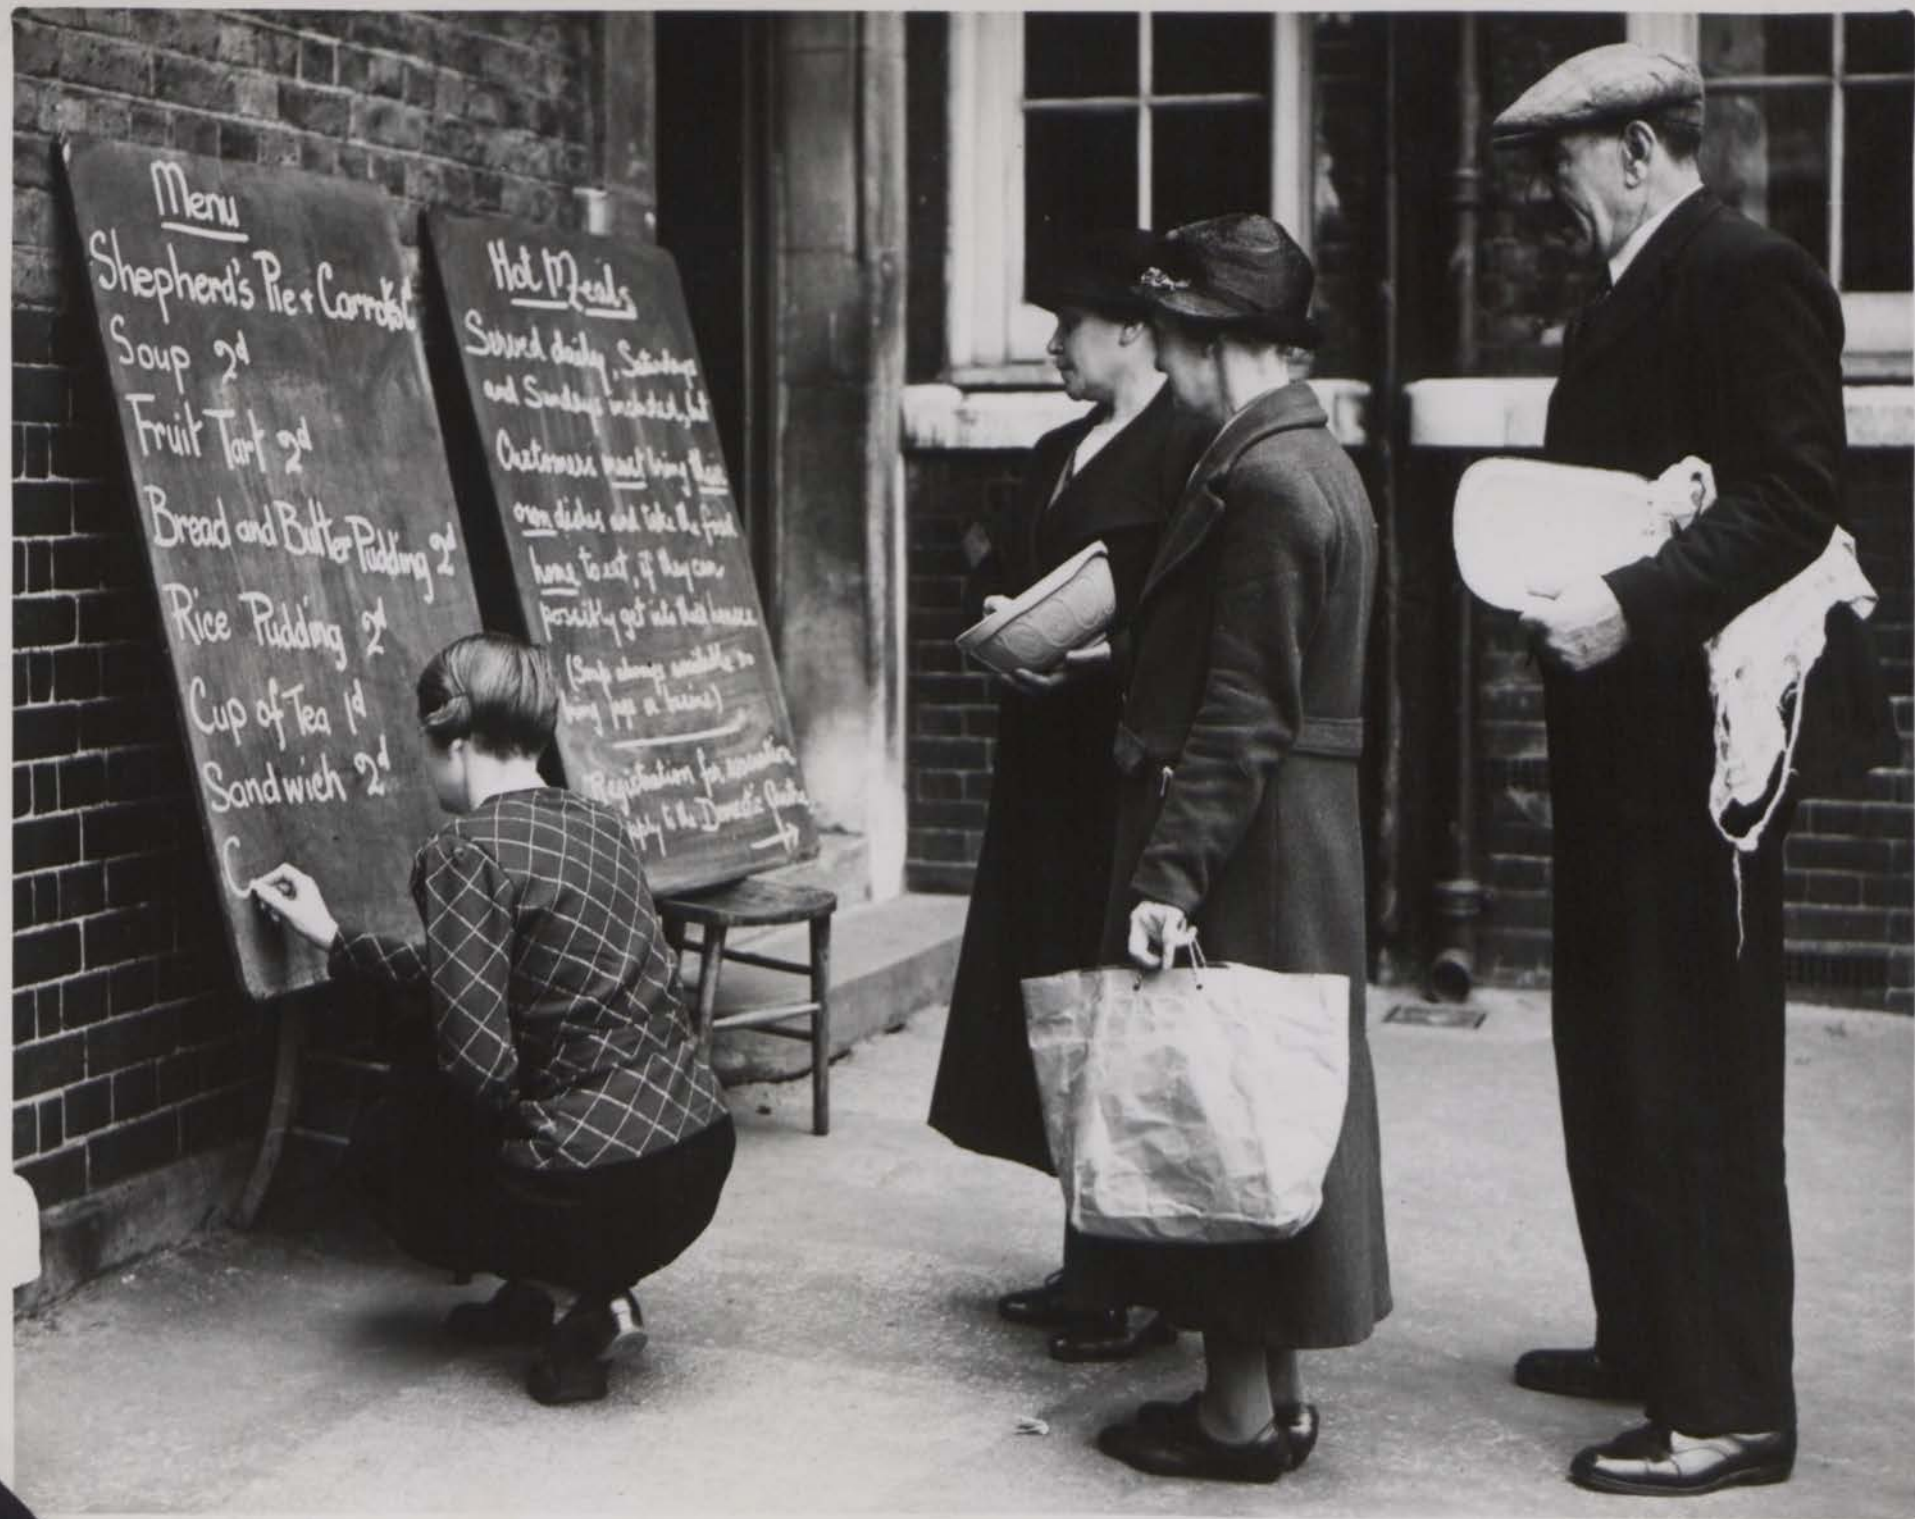 Menu
Shepherd's Pie + Carrots
Soup 2d
Fruit Tart 2d
Bread and Butter Pudding 2d
Rice Pudding 2d
Cup of Tea 1d
Sandwich 2d
C
Hot Meals
Served daily, Saturdays
and Sundays included, but
Customers must bring their
own dishes and take the food
home to eat, if they can
possibly get into their houses
(Soup always available so
bring jugs or basins)
Registration for evacuation
apply to the Domestic